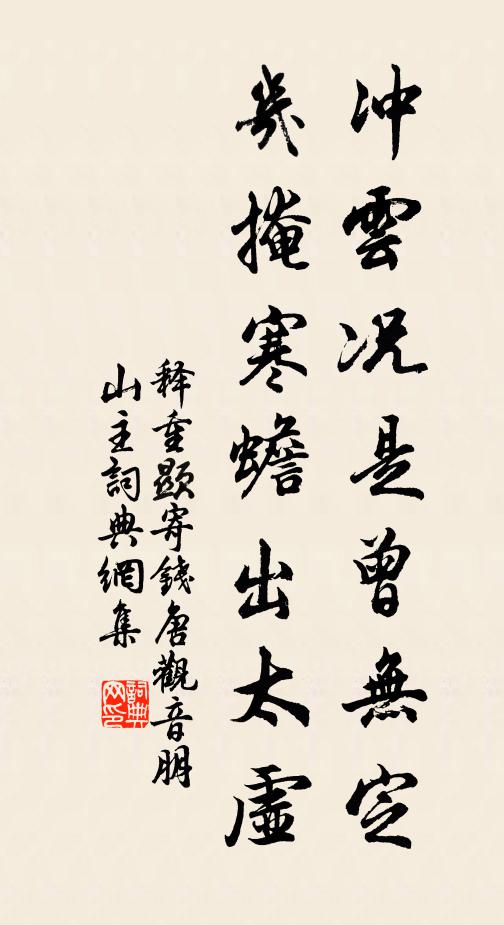 冲雲况是曾無定
幾掩寒蟾出太虛
釋重顯寄錢唐觀音朋
山主詞典網集
詞典
网印